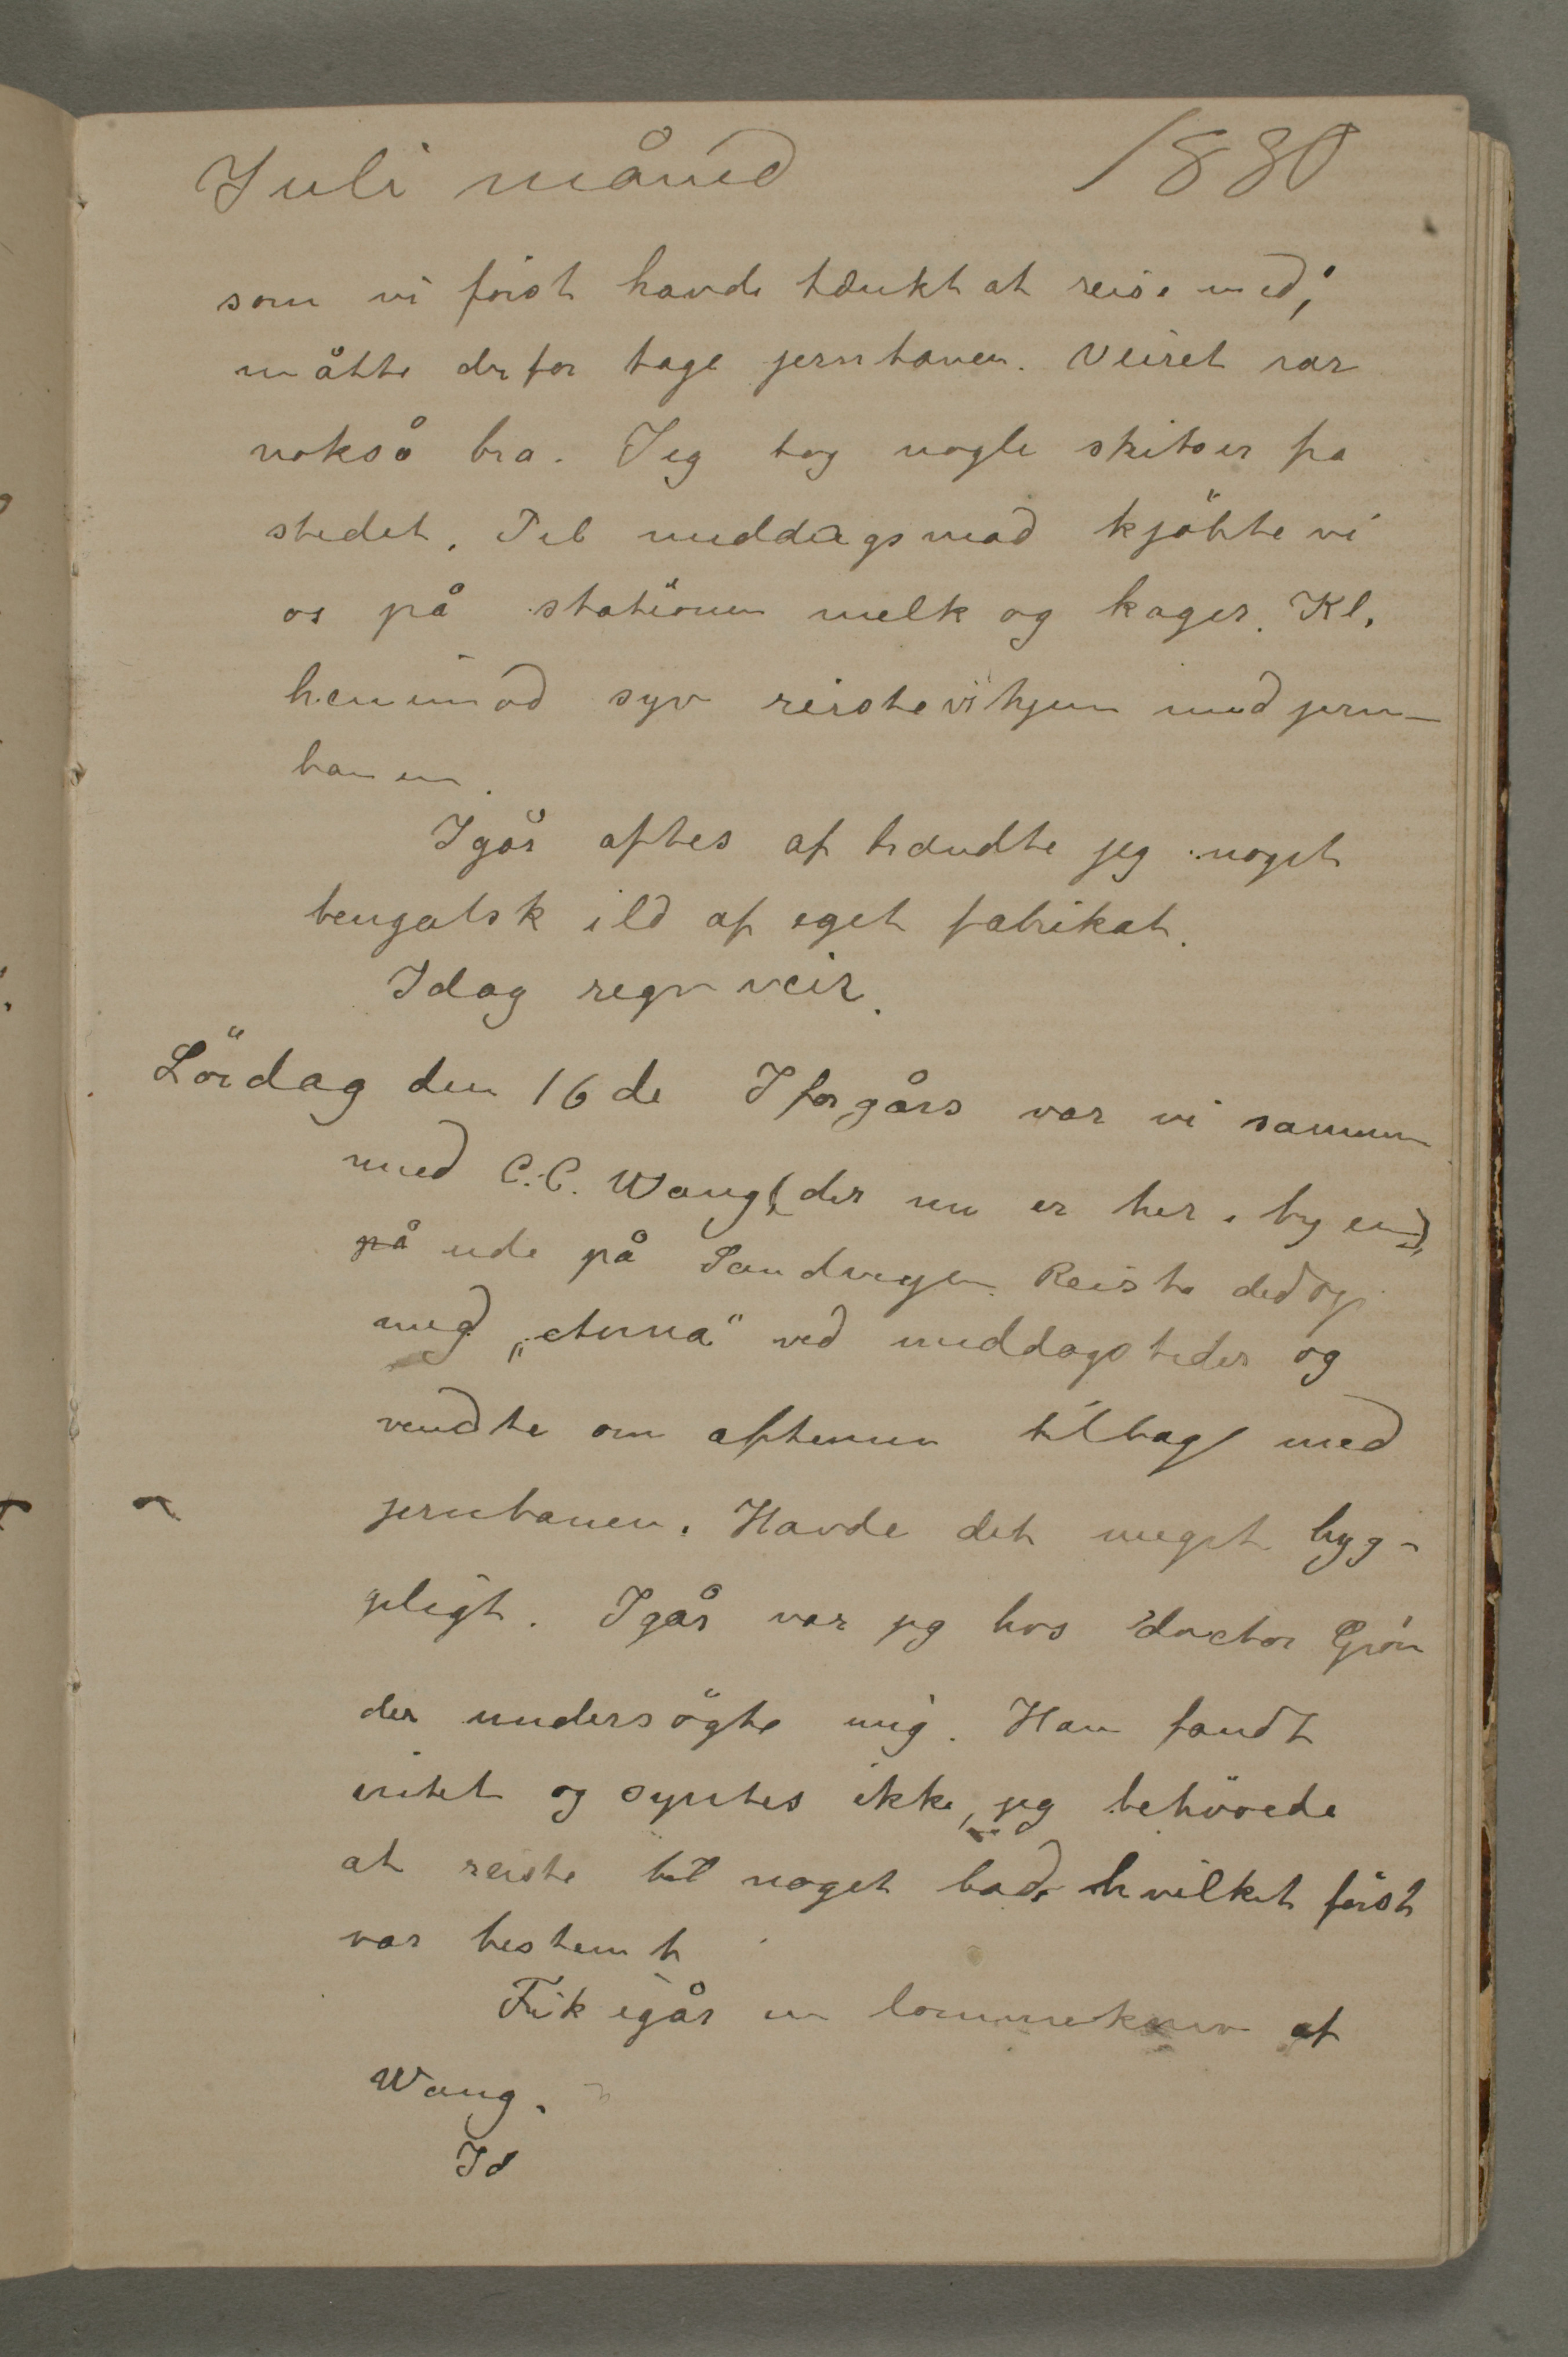 Juli måned 1880
som vi först havde tænkt at reise med;
måtte derfor tage jernbanen. Veiret var
nokså bra. Jeg tog nogle skitser fra
stedet. Til middagsmad kjöbte vi
os på stationen melk og kager. Kl.
henimod syv reiste vi hjem med jern-
banen.
Igår aftes afbrændte jeg noget
bengalsk ild af eget fabrikat.
Idag regnveir.
Lördag den 16de Iforgårs var vi sammen
med C.C. Wang (der nu er her i byen),
på ude på Sandvigen. Reiste did op
med „eterna" ved middagstider og
vendte om aftenen tilbage med
jernbanen. Havde det meget hyg-
geligt. Igår var jeg hos doctor Grön
der undersögte mig. Han fandt
intet og syntes ikke, jeg behövede
at reiste til noget bad, hvilket först
var bestemt
Fik igår en lommekniv af
Wang.
Id